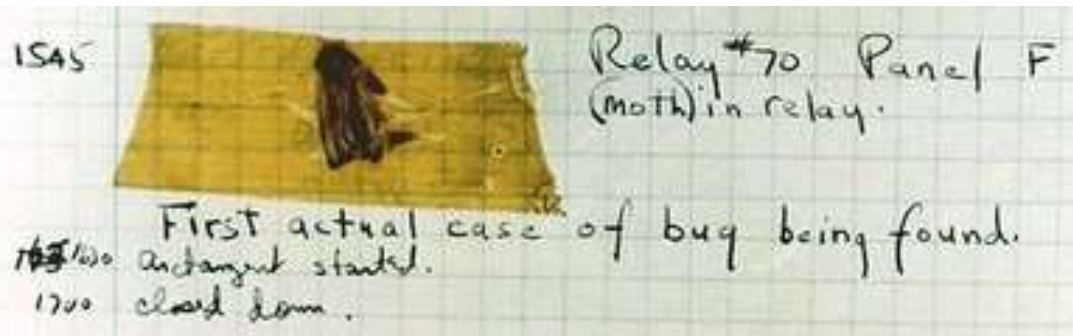 1545 Relay #70 Panel F
(moth) in relay.
First actual case of bug being found.
1630 antangent started.
1700 closed down.